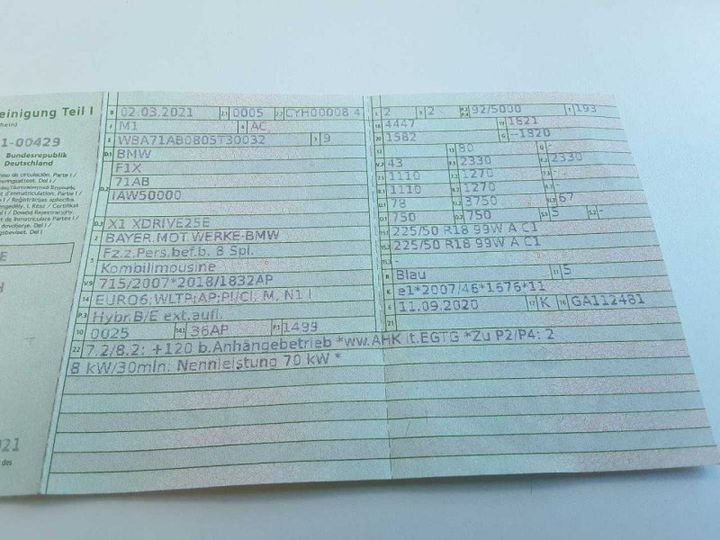 einigung Teil I
1-00429
Bundesrepublik
Deutschland
B 02.03.2021 2.1 0005 2.2 CYH00008 4
J M1 4 AC
E WBA71AB0805T30032 3 9
D.1 BMW
D.2 F1X
71AB
IAW50000
D.3 X1 XDRIVE25E
2 BAYER.MOT.WERKE-BMW
5 Fz.z.Pers.bef.b. 8 Spl.
Kombilimousine
V.9 715/2007*2018/1832AP
14 EURO6;WLTP;AP;PI/CI; M, N1 I
P.3 Hybr.B/E ext.aufl.
10 0025 14.1 36AP P.1 1499
22 7.2/8.2: +120 b.Anhängebetrieb *ww.AHK lt.EGTG *Zu P2/P4: 2
8 kW/30min: Nennleistung 70 kW *
L 2 9 2 92/5000 T 193
18 4447 19 1821
20 1582 G -1820
12 - 13 80 Q -
43 2330 2330
1110 1270 -
1110 1270 -
U.1 78 U.2 3750 U.3 67
O.1 750 O.2 750 S.1 5 S.2 -
15.1 225/50 R18 99W A C1
15.2 225/50 R18 99W A C1
15.3 -
R Blau 11 5
K e1*2007/46*1676*11
6 11.09.2020 17 K 16 GA112481
21
E
021